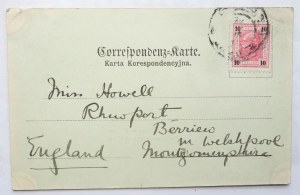 Correspondenz-Karte.
Karta Korespondencyjna.
10 10
10 10
Miss Howell
Rhiewport
Berriew
nr Welshpool
Montgomeryshire
England